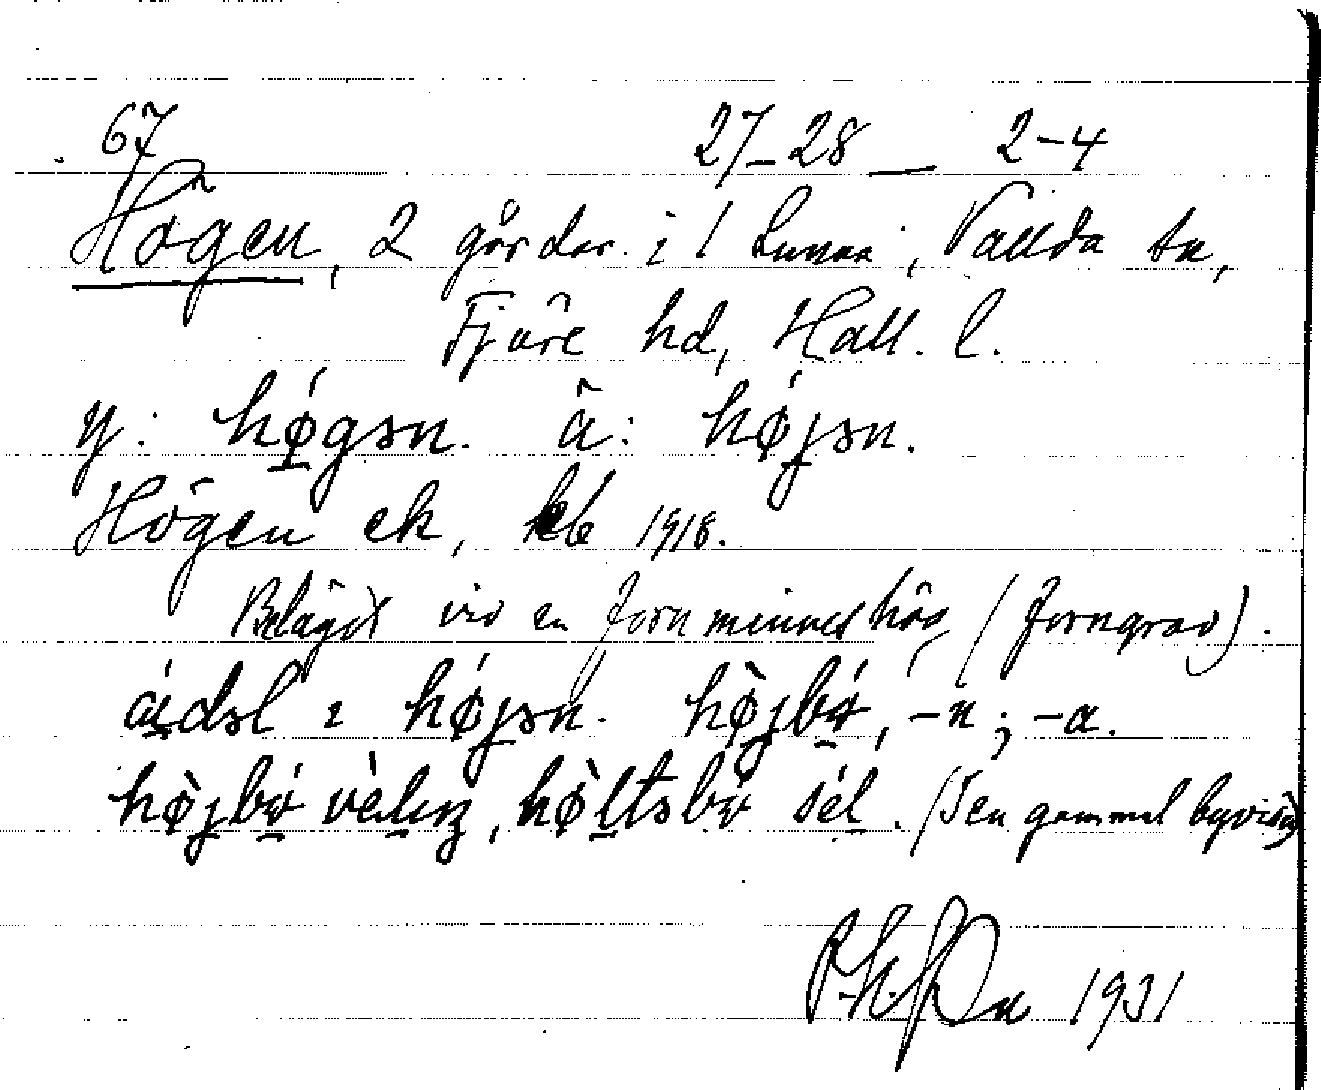 67 27-28 — 2-4
Högen, 2 gårdar i 1 hemma, Vallda sn,
Fjäre hd, Hall. l.
y: hǿgən. ä: hǿjən.
Högen ek, kb 1918.
Beläget vid en fornminneshög (forngrav).
ái̯dəl i hǿjən. hø̀jbo, -n; -a.
hø̀jbo vèlıŋ, hø̀ltsbo sél. (I en gammal byvisa)
1931